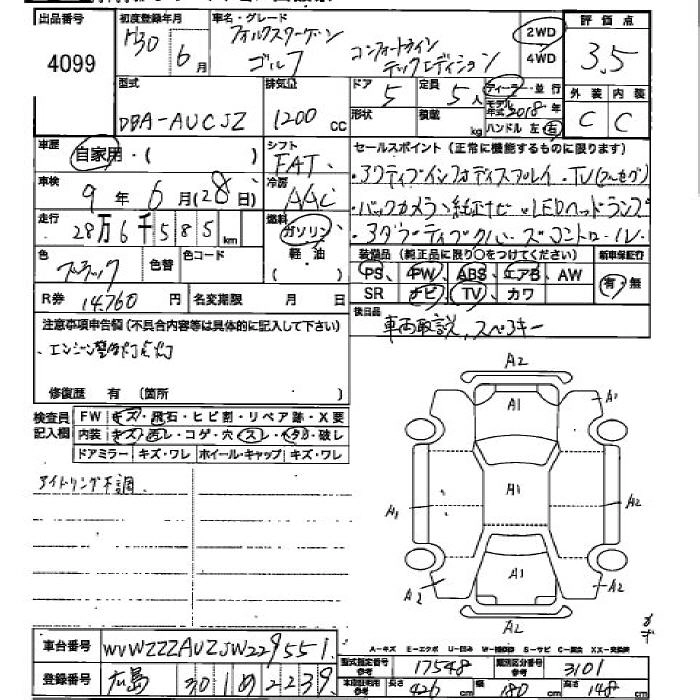 出品番号 初度登録年月 車名・グレード 評価点
4099 H30年6月 フォルクスワーゲン ゴルフ コンフォートライン テックエディション 2WD 4WD 3.5
型式 排気量 ドア 定員 ディーラー・並行 外装 内装
DBA-AUCJZ 1200cc 5 5人 モデル年式 2018年 C C
形状 積載 kg ハンドル 左 右
車歴 自家用・( ) シフト FAT セールスポイント(正常に機能するものに限ります)
車検 9年6月(28日) 冷房 AAC ・アクティブインフォディスプレイ・TV(フルセグ)
走行 28万6千585km 燃料 ガソリン 軽油 ・バックカメラ・純正ナビ・LEDヘッドランプ
・アダプティブクルーズコントロール
色 ブラック 色替 色コード 装備品(純正品に限り○をつけてください) 新車保証行
PS PW ABS エアB AW 有・無
R券 14,760円 名変期限 月 日 SR ナビ TV カワ
注意事項申告欄(不具合内容等は具体的に記入して下さい) 後日品 車両取説、スペアキー
・エンジン警告灯点灯
修復歴 有 (箇所
検査員記入欄 FW キズ・飛石・ヒビ割・リペア跡・X要
内装 キズ・汚レ・コゲ・穴・スレ・ヘタリ・破レ
ドアミラー キズ・ワレ ホイール・キャップ キズ・ワレ
アイドリング不調
A2
A1 A1
A1 A1 A2
A1
A2 A2
A2
A-キズ E-エクボ U-凹み W-補修跡 S-サビ C-腐食 XX-交換済
車台番号 WVWZZZAUZJW229551
型式指定番号 17548 類別区分番号 3101
登録番号 広島 301 め 2239
長さ 426cm 幅 180cm 高さ 148cm